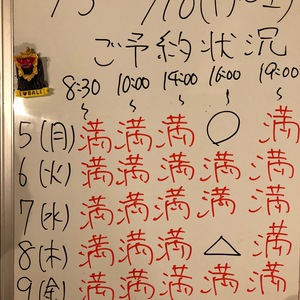 ご予約状況
8:30 10:00 14:00 16:00 19:00
~ ~ ~ ~ ~
5(月) 満 満 満 ○ 満
6(火) 満 満 満 満 満
7(水) 満 満 満 満 満
8(木) 満 満 満 △ 満
9(金) 満 満 満 満 満